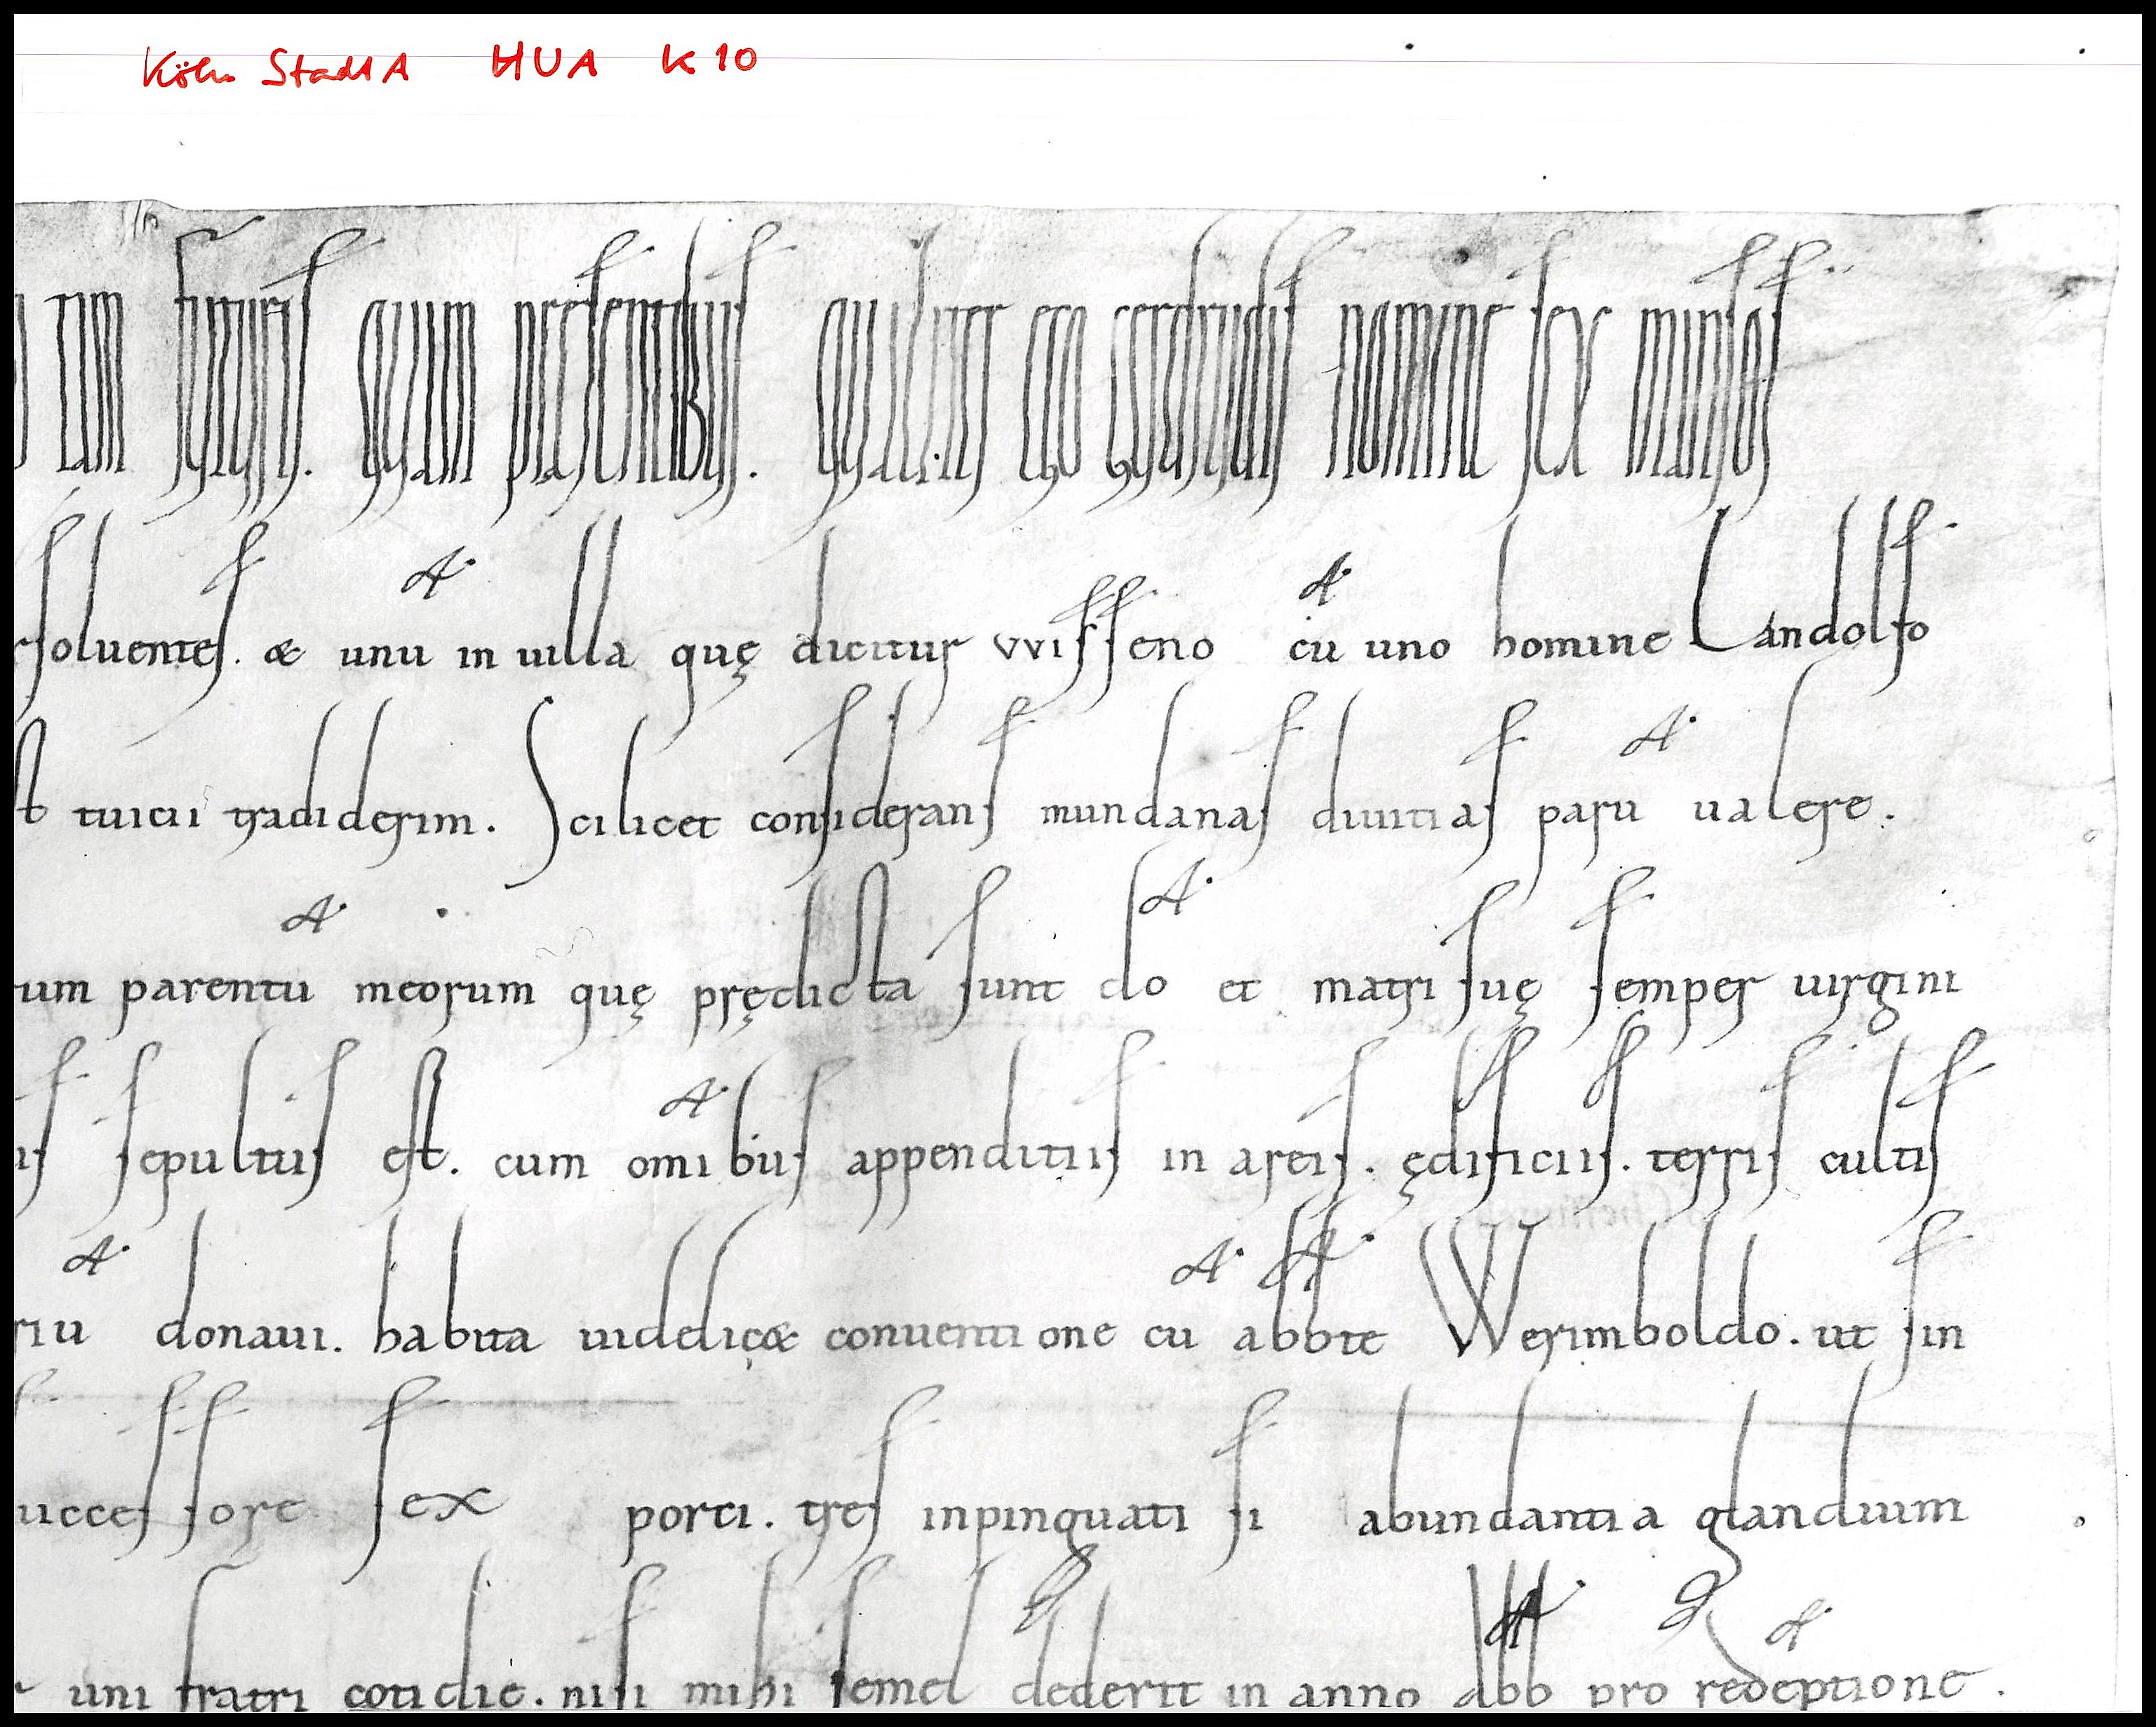 Köln StadtA HUA K 10
tam futuris. quam praesentibus. qualiter ego gerdrudis nomine sex mansos
soluentes. & unu in uilla quę dicitur vvisseno cu uno homine Landolfo
tuicii tradiderim. Scilicet considerans mundanas diuitias paru ualere.
um parentu meorum quę prędicta sunt do et matri suę semper uirgini
is sepultus est. cum omibus appenditiis in areis. ędificiis. terris cultis
riu donaui. habita uidelic& conuentione cu abbte Werimboldo. ut sin
uccessore sex porci. tres inpinguati si abundantia glandium
uni fratri cotidie. nisi mihi semel dederit in anno abb pro redeptione.